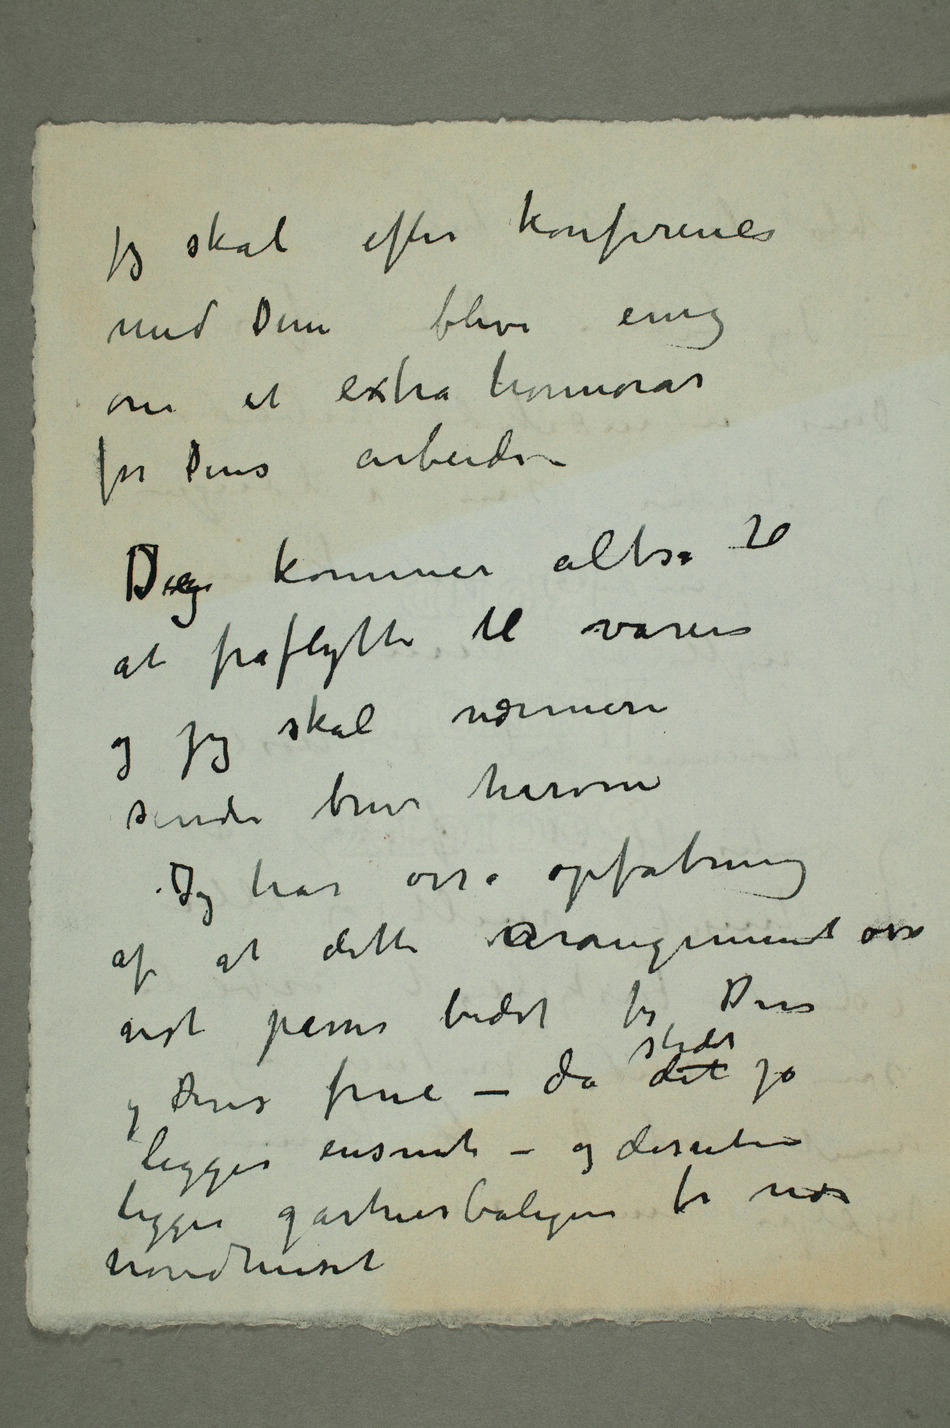 Jeg skal efter konference
med Dem blive enig
om et extra honnorar
for Deres arbeide –
De kommer altså til
at fraflytte til våren
og jeg skal nærmere
sende brev herom
Jeg har osså opfatning
af at dette arrangement osså
vist passer bedst for Dem
og Deres frue – da stedet jo
ligger ensomt – og desuten
ligger gartnerboligen for nær
hovedhuset